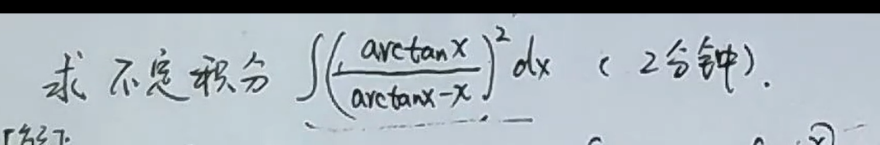 求不定积分 ∫(arctanx/(arctanx-x))² dx (2分钟).